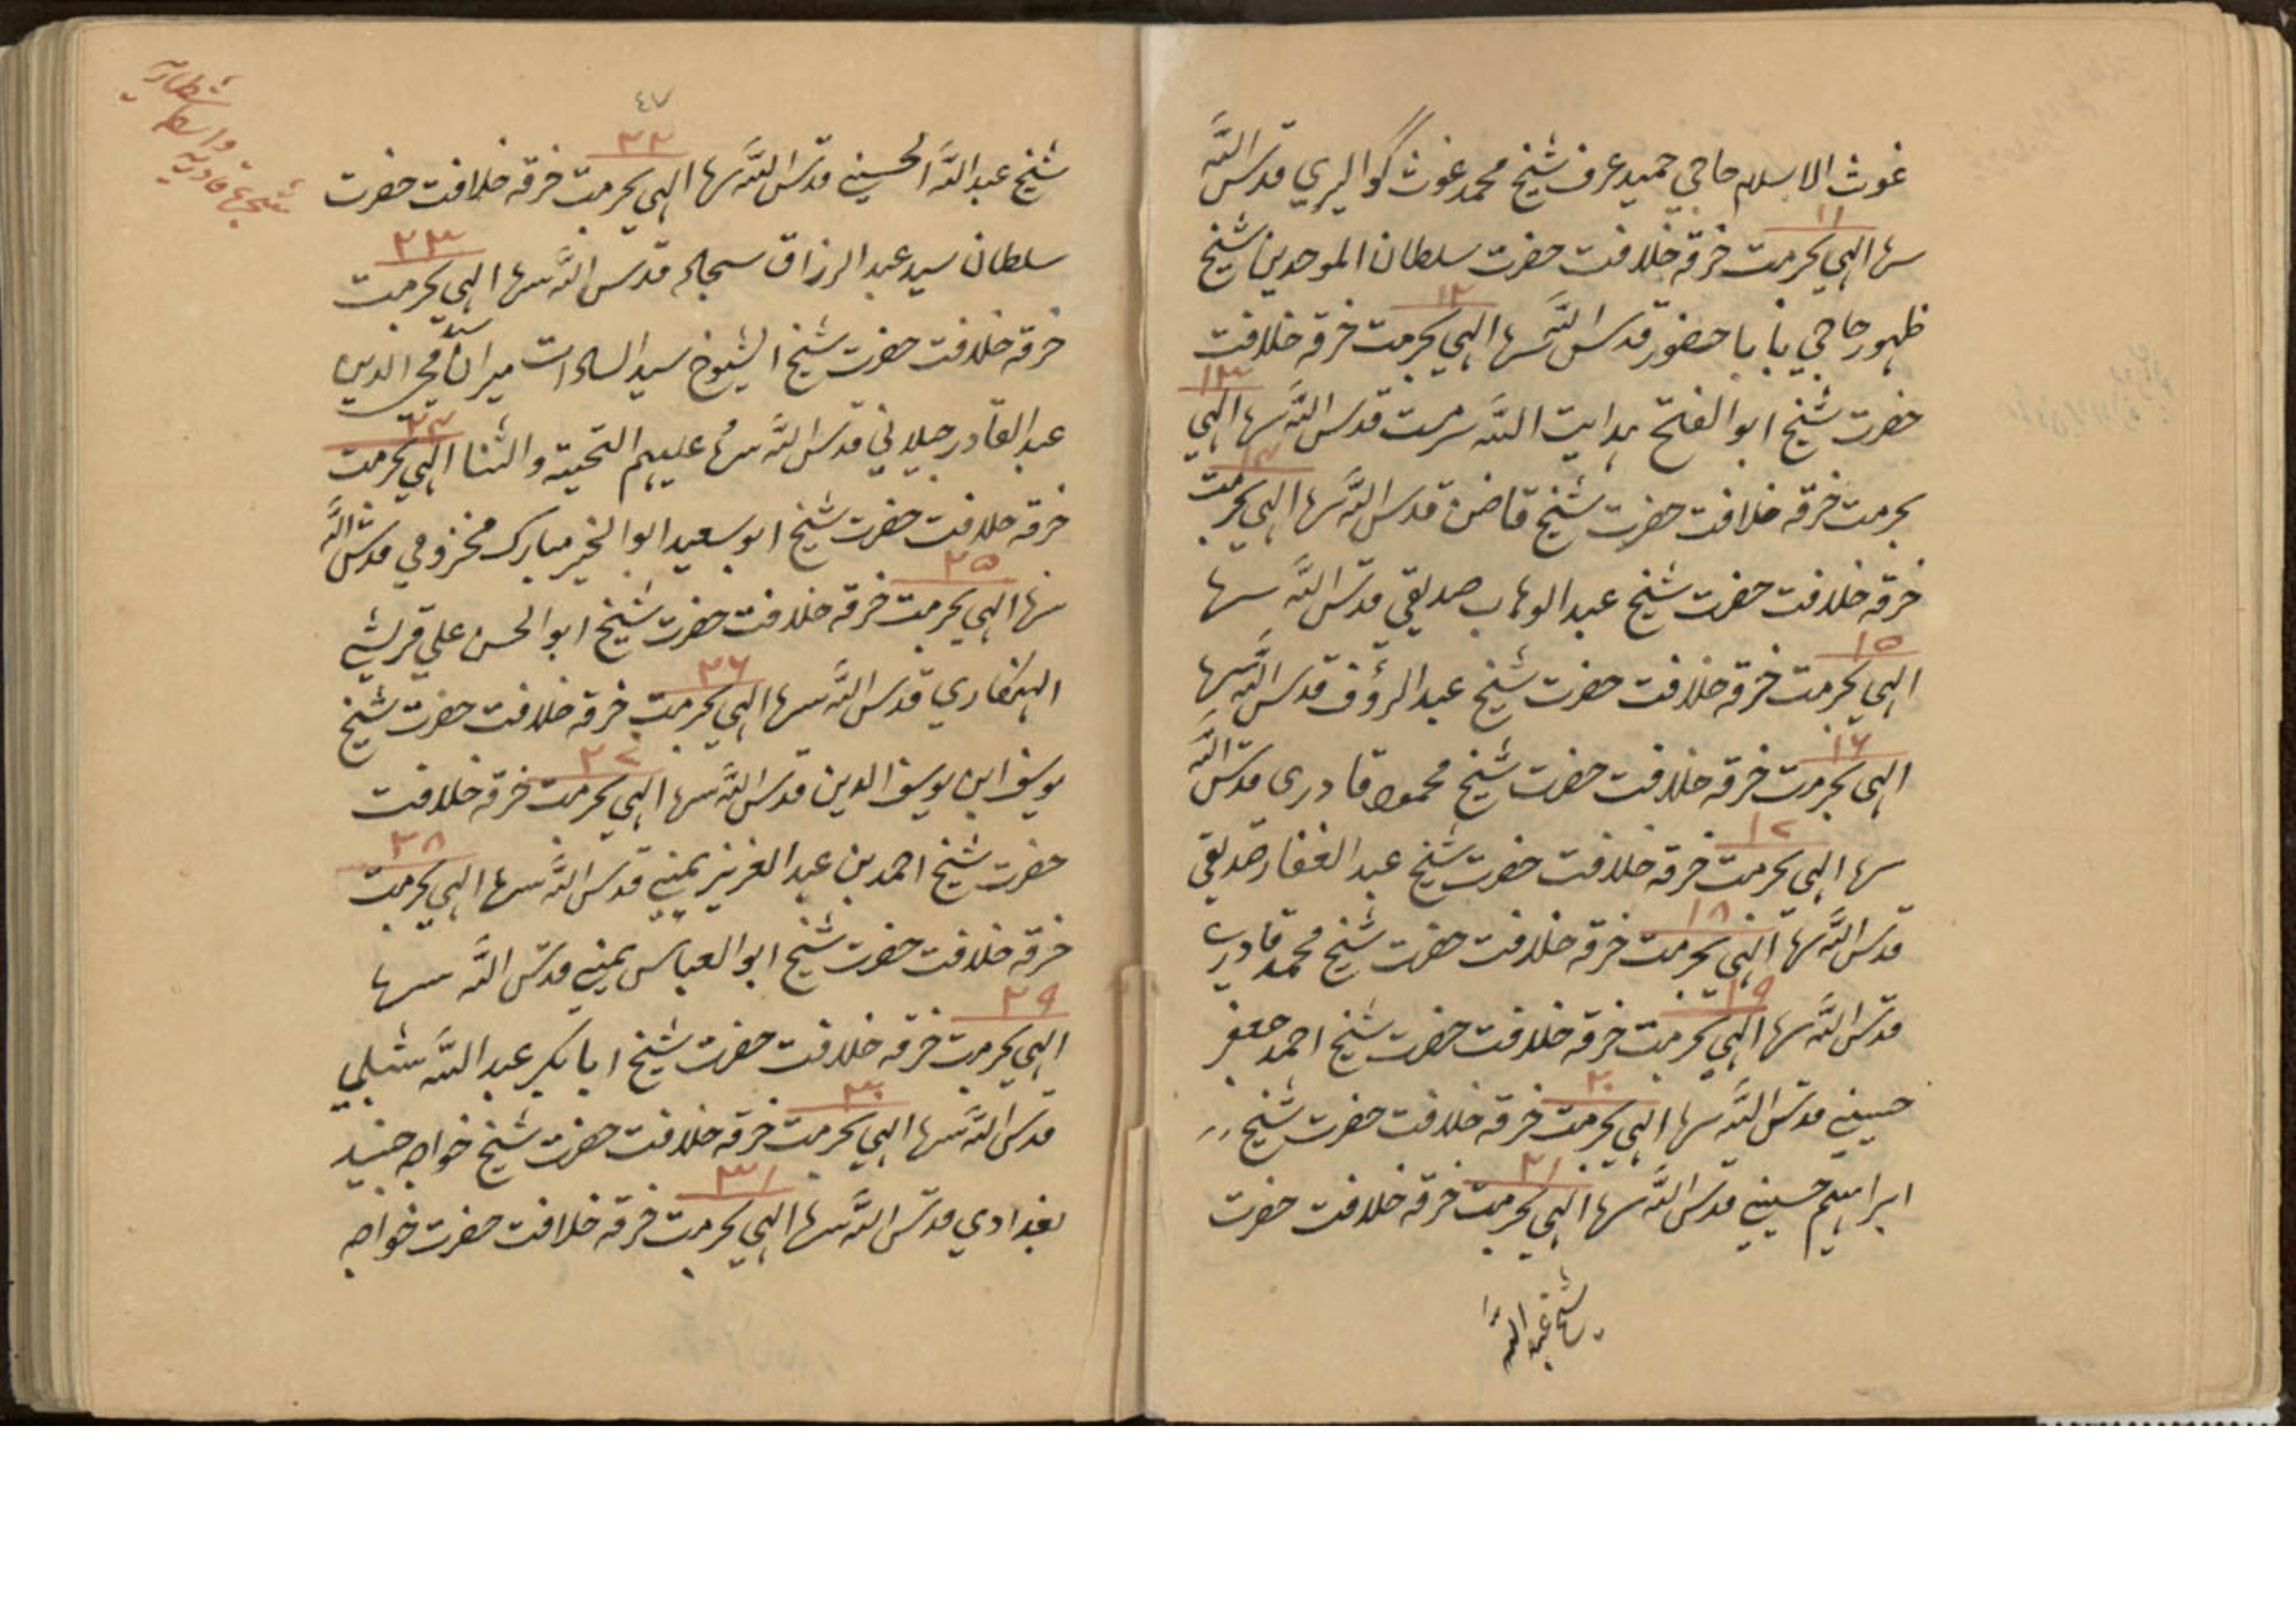 غوث الاسلام حاجي حميد عرف شيخ محمد غوث گواليري قدس الله
۱۱
سرها الہي بحرمت خرقه خلافت حضرت سلطان الموحدين شيخ
۱۲
ظہور حاجي بابا حضور قدس الله سرها الہي بحرمت خرقه خلافت
۱۳
حضرت شيخ ابو الفتح ہدايت الله سرمست قدس الله سرها الہي
۱۴
بحرمت خرقه خلافت حضرت شيخ قاضن قدس الله سرها الہي بحرمت
خرقه خلافت حضرت شيخ عبد الوهاب صديقي قدس الله سرها
۱۵
الہي بحرمت خرقه خلافت حضرت شيخ عبد الرؤف قدس الله سرها
۱۶
الہي بحرمت خرقه خلافت حضرت شيخ محمود قادری قدس الله
۱۷
سرها الہي بحرمت خرقه خلافت حضرت شيخ عبد الغفار صديقي
۱۸
قدس الله سرها الہي بحرمت خرقه خلافت حضرت شيخ محمد قادري
۱۹
قدس الله سرها الہي بحرمت خرقه خلافت حضرت شيخ احمد جعفر
۲۰
حسيني قدس الله سرها الہي بحرمت خرقه خلافت حضرت شيخ
۲۱
ابراہيم حسيني قدس الله سرها الہي بحرمت خرقه خلافت حضرت
شيخ عبد الله
۴۷
شجرہا قادريه
شطاريه
۲۲
شيخ عبد الله الحسيني قدس الله سرها الہي بحرمت خرقه خلافت حضرت
۲۳
سلطان سيد عبد الرزاق قدس الله سرها الہي بحرمت
خرقه خلافت حضرت شيخ الشيوخ سيد السادات ميران سيد محي الدين
۲۴
عبد القادر جيلاني قدس الله سرها عليہم التحيته والثنا الہي بحرمت
خرقه خلافت حضرت شيخ ابو سعيد ابو الخير مبارك مخزومي قدس الله
۲۵
سرها الہي بحرمت خرقه خلافت حضرت شيخ ابو الحسن علي قريشي
۲۶
الہنكاري قدس الله سرها الہي بحرمت خرقه خلافت حضرت شيخ
۲۷
يوسف ابن يوسف الدين قدس الله سرها الہي بحرمت خرقه خلافت
۲۸
حضرت شيخ احمد بن عبد العزيز يمني قدس الله سرها الہي بحرمت
خرقه خلافت حضرت شيخ ابو العباس يمني قدس الله سرها
۲۹
الہي بحرمت خرقه خلافت حضرت شيخ ابا بكر عبد الله شبلي
۳۰
قدس الله سرها الہي بحرمت خرقه خلافت حضرت شيخ خواجه جنيد
۳۱
بغدادي قدس الله سرها الہي بحرمت خرقه خلافت حضرت خواجه